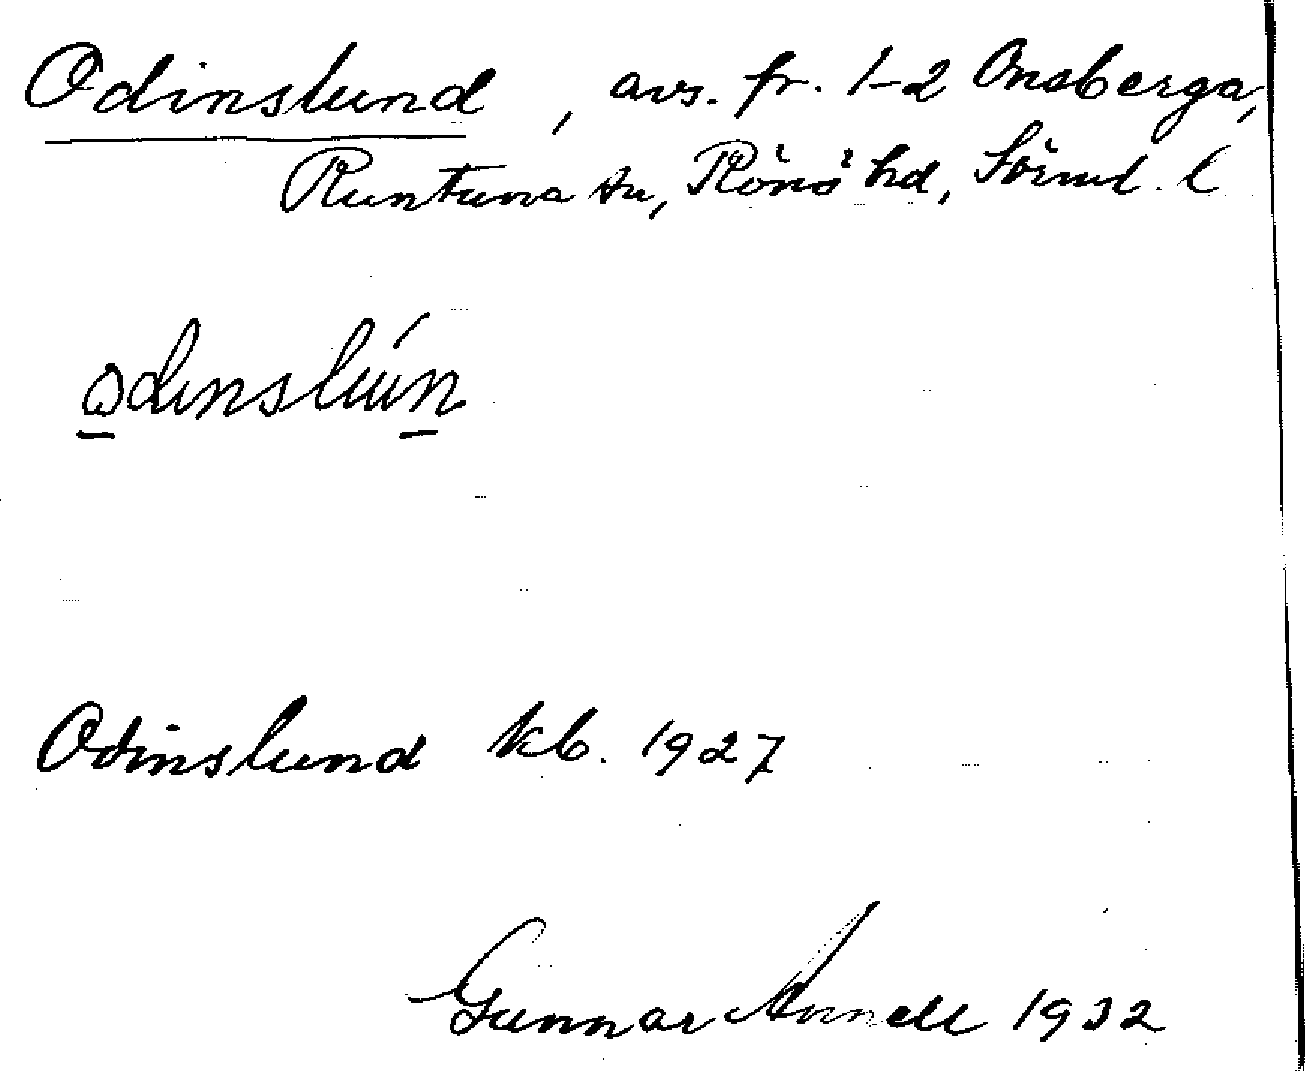 Odinslund, avs. fr. 1-2 Onsberga,
Runtuna sn, Rönö hd, Sörml. l
Odinslund kb. 1927
Gunnar Annell 1932